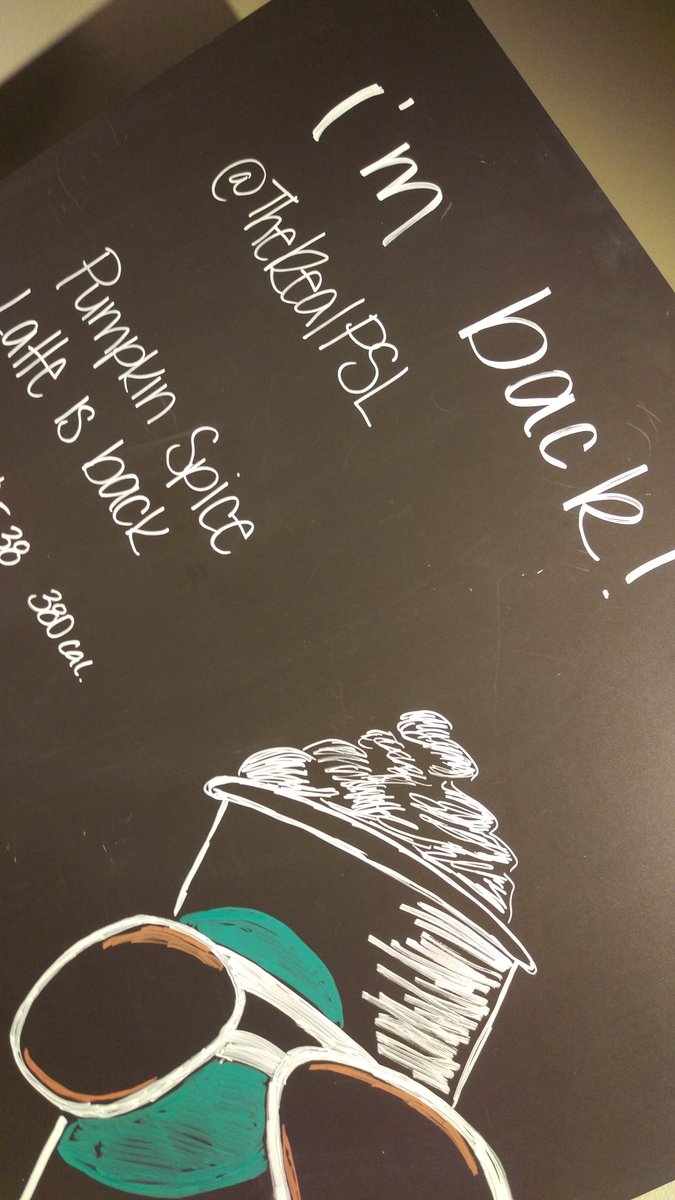 I'm back!
@TheRealPSL
Pumpkin Spice
Latte is back
38 380 cal.